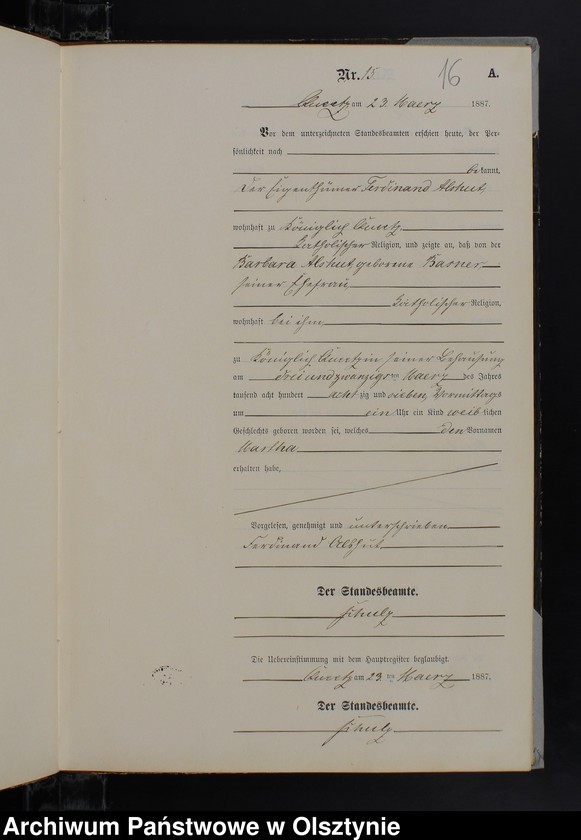 Nr. 15 16 A.
am 23. Maerz 1887.
Vor dem unterzeichneten Standesbeamten erschien heute, der Per-
sönlichkeit nach
bekannt,
der Eigenthümer Ferdinand Alshut,
wohnhaft zu Königlich
katholischer Religion, und zeigte an, daß von der
Barbara Alshut, geborene Basner
seiner Ehefrau
katholischer Religion,
wohnhaft bei ihm
zu Königlich in seiner Behausung
am dreiundzwanzigsten Maerz des Jahres
tausend acht hundert achtzig und sieben, Vormittags
um ein Uhr ein Kind weiblichen
Geschlechts geboren worden sei, welches den Vornamen
Martha
erhalten habe,
Vorgelesen, genehmigt und unterschrieben
Ferdinand Alshut
Der Standesbeamte.
Schulz
Die Uebereinstimmung mit dem Hauptregister beglaubigt.
am 23 ten Maerz 1887.
Der Standesbeamte.
Schulz
Archiwum Państwowe w Olsztynie